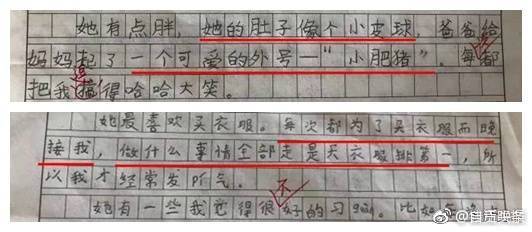 她有点胖，她的肚子像个小皮球，爸爸给
妈妈起了一个可爱的外号—“小肥猪”。每都
把我搞得哈哈大笑。
她最喜欢买衣服。每次都为了买衣服而晚
接我，做什么事情全部走是买衣服排第一，所
以我才经常发pí气。
不
她有一些我觉得很好的习guàn。比如
@自贡晚报